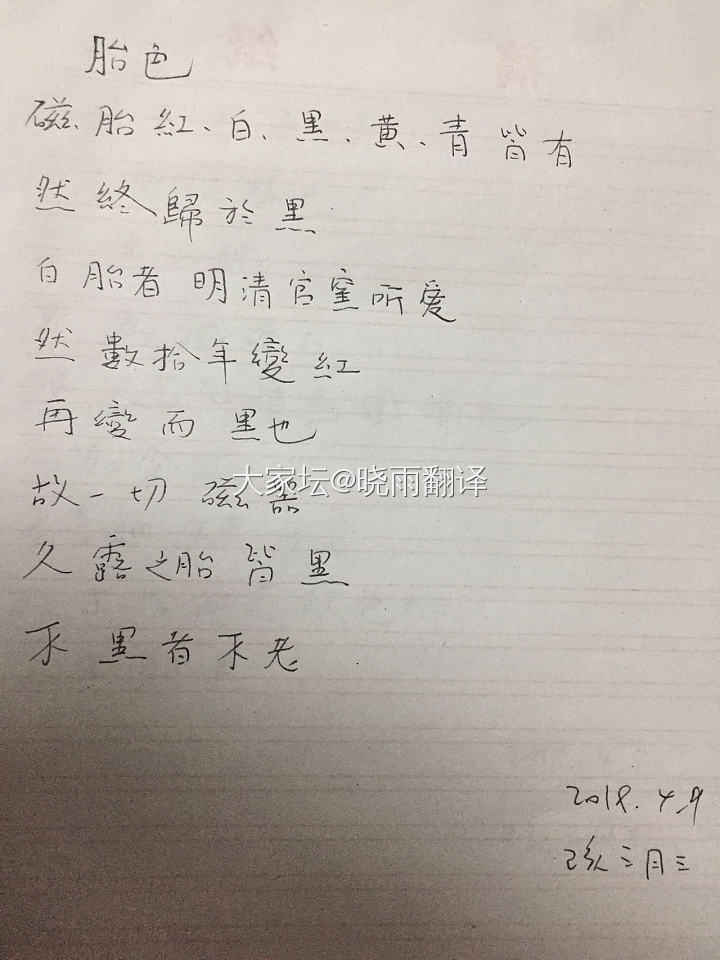 胎色
磁胎紅、白、黒、黄、青皆有
然終歸於黒
白胎者 明清官窯所爱
然數拾年變紅
再變而黒也
故一切磁器
大家坛@晓雨翻译
久露之胎皆黒
不黒者不老
2019.4.9
己亥三月三